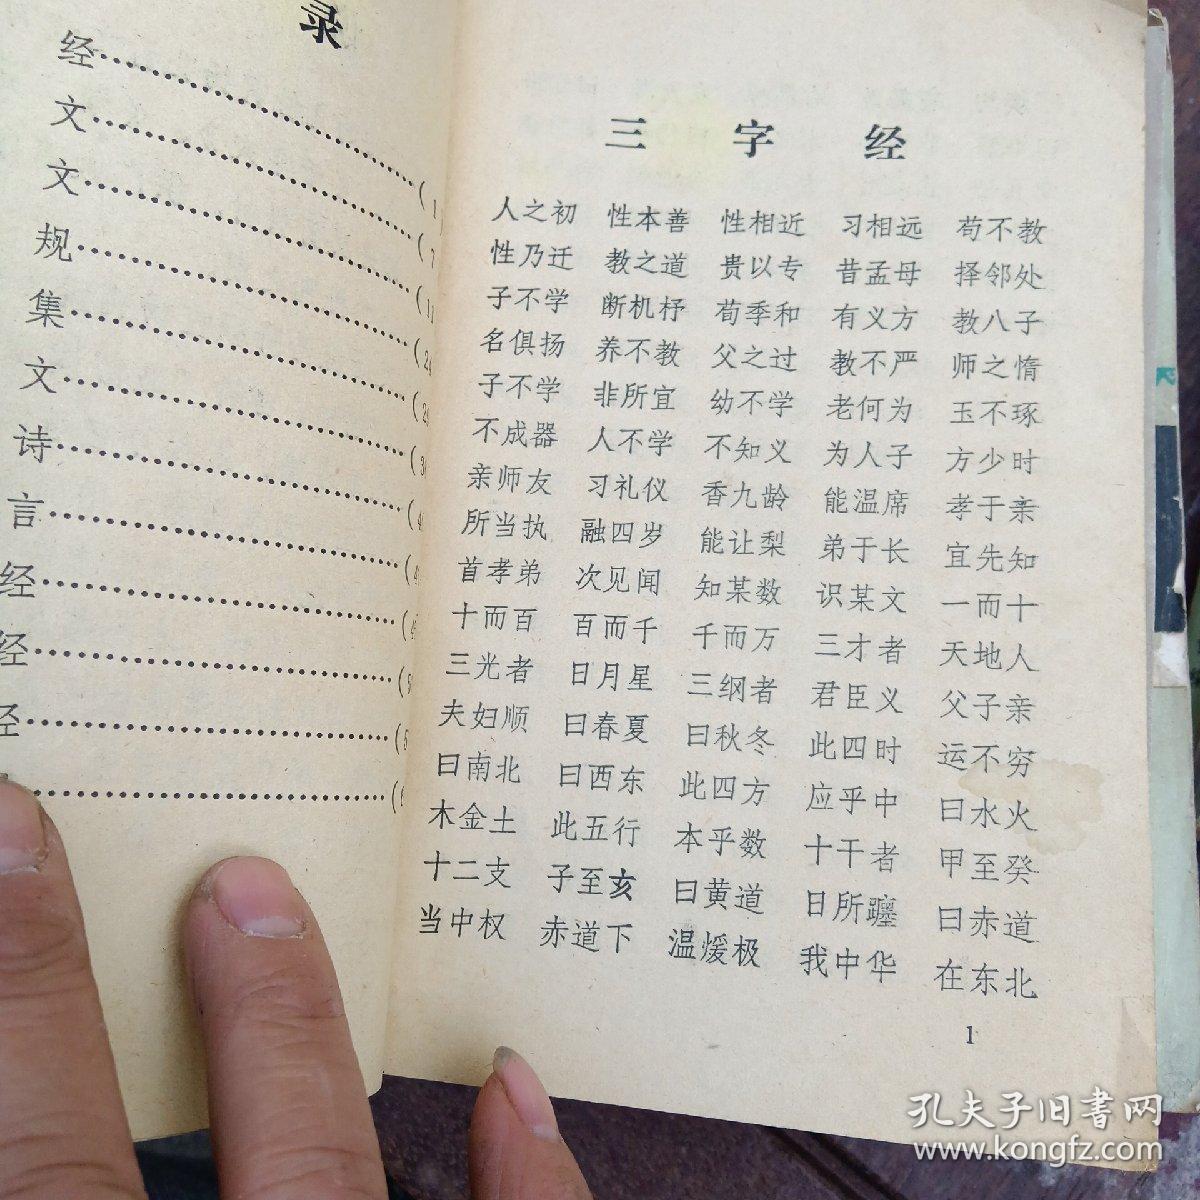 录
经……(1
文……(7
文……(1
规……(2
集……(2
文……(3
诗……(4
言……(4
经……(4
经……(5
经……(6
三字经
人之初 性本善 性相近 习相远 苟不教
性乃迁 教之道 贵以专 昔孟母 择邻处
子不学 断机杼 荀季和 有义方 教八子
名俱扬 养不教 父之过 教不严 师之惰
子不学 非所宜 幼不学 老何为 玉不琢
不成器 人不学 不知义 为人子 方少时
亲师友 习礼仪 香九龄 能温席 孝于亲
所当执 融四岁 能让梨 弟于长 宜先知
首孝弟 次见闻 知某数 识某文 一而十
十而百 百而千 千而万 三才者 天地人
三光者 日月星 三纲者 君臣义 父子亲
夫妇顺 曰春夏 曰秋冬 此四时 运不穷
曰南北 曰西东 此四方 应乎中 曰水火
木金土 此五行 本乎数 十干者 甲至癸
十二支 子至亥 曰黄道 日所躔 曰赤道
当中权 赤道下 温煖极 我中华 在东北
1
孔夫子旧书网
www.kongfz.com